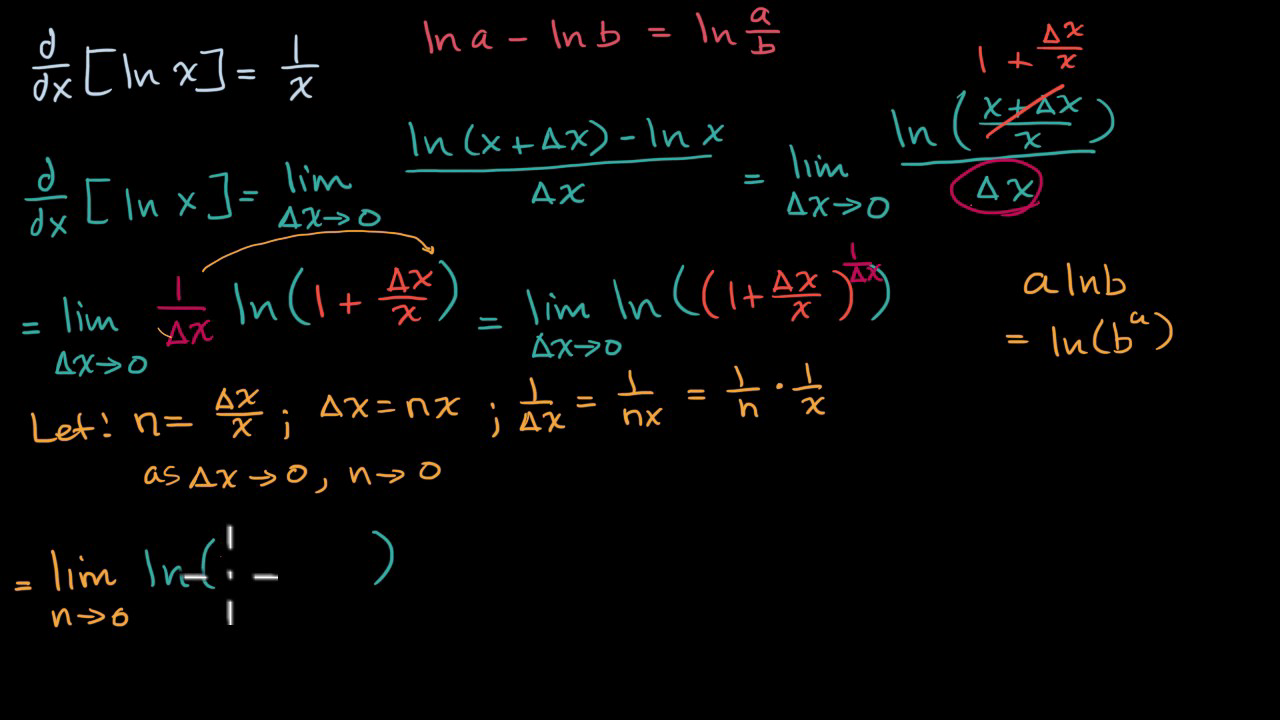 d/dx [ln x] = 1/x
ln a - ln b = ln a/b
1 + Δx/x
d/dx [ln x] = lim Δx→0 (ln(x+Δx) - ln x)/Δx = lim Δx→0 ln((x+Δx)/x)/Δx
= lim Δx→0 1/Δx ln(1 + Δx/x) = lim Δx→0 ln((1+Δx/x)^(1/Δx))
a ln b
= ln(b^a)
Let: n = Δx/x ; Δx = nx ; 1/Δx = 1/nx = 1/n · 1/x
as Δx→0, n→0
= lim n→0 ln( )